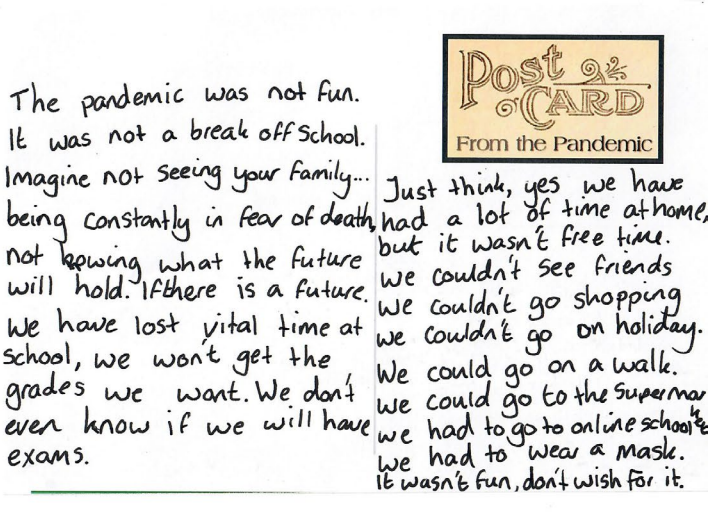 The pandemic was not fun.
It was not a break off School.
Imagine not seeing your family...
being constantly in fear of death,
not knowing what the future
will hold. If there is a future.
We have lost vital time at
school, we won't get the
grades we want. We don't
even know if we will have
exams.
Post
CARD
From the Pandemic
Just think, yes we have
had a lot of time at home,
but it wasn't free time.
we couldn't see friends
we couldn't go shopping
we couldn't go on holiday.
We could go on a walk.
we could go to the supermarket
we had to go to online school
we had to wear a mask.
It wasn't fun, don't wish for it.